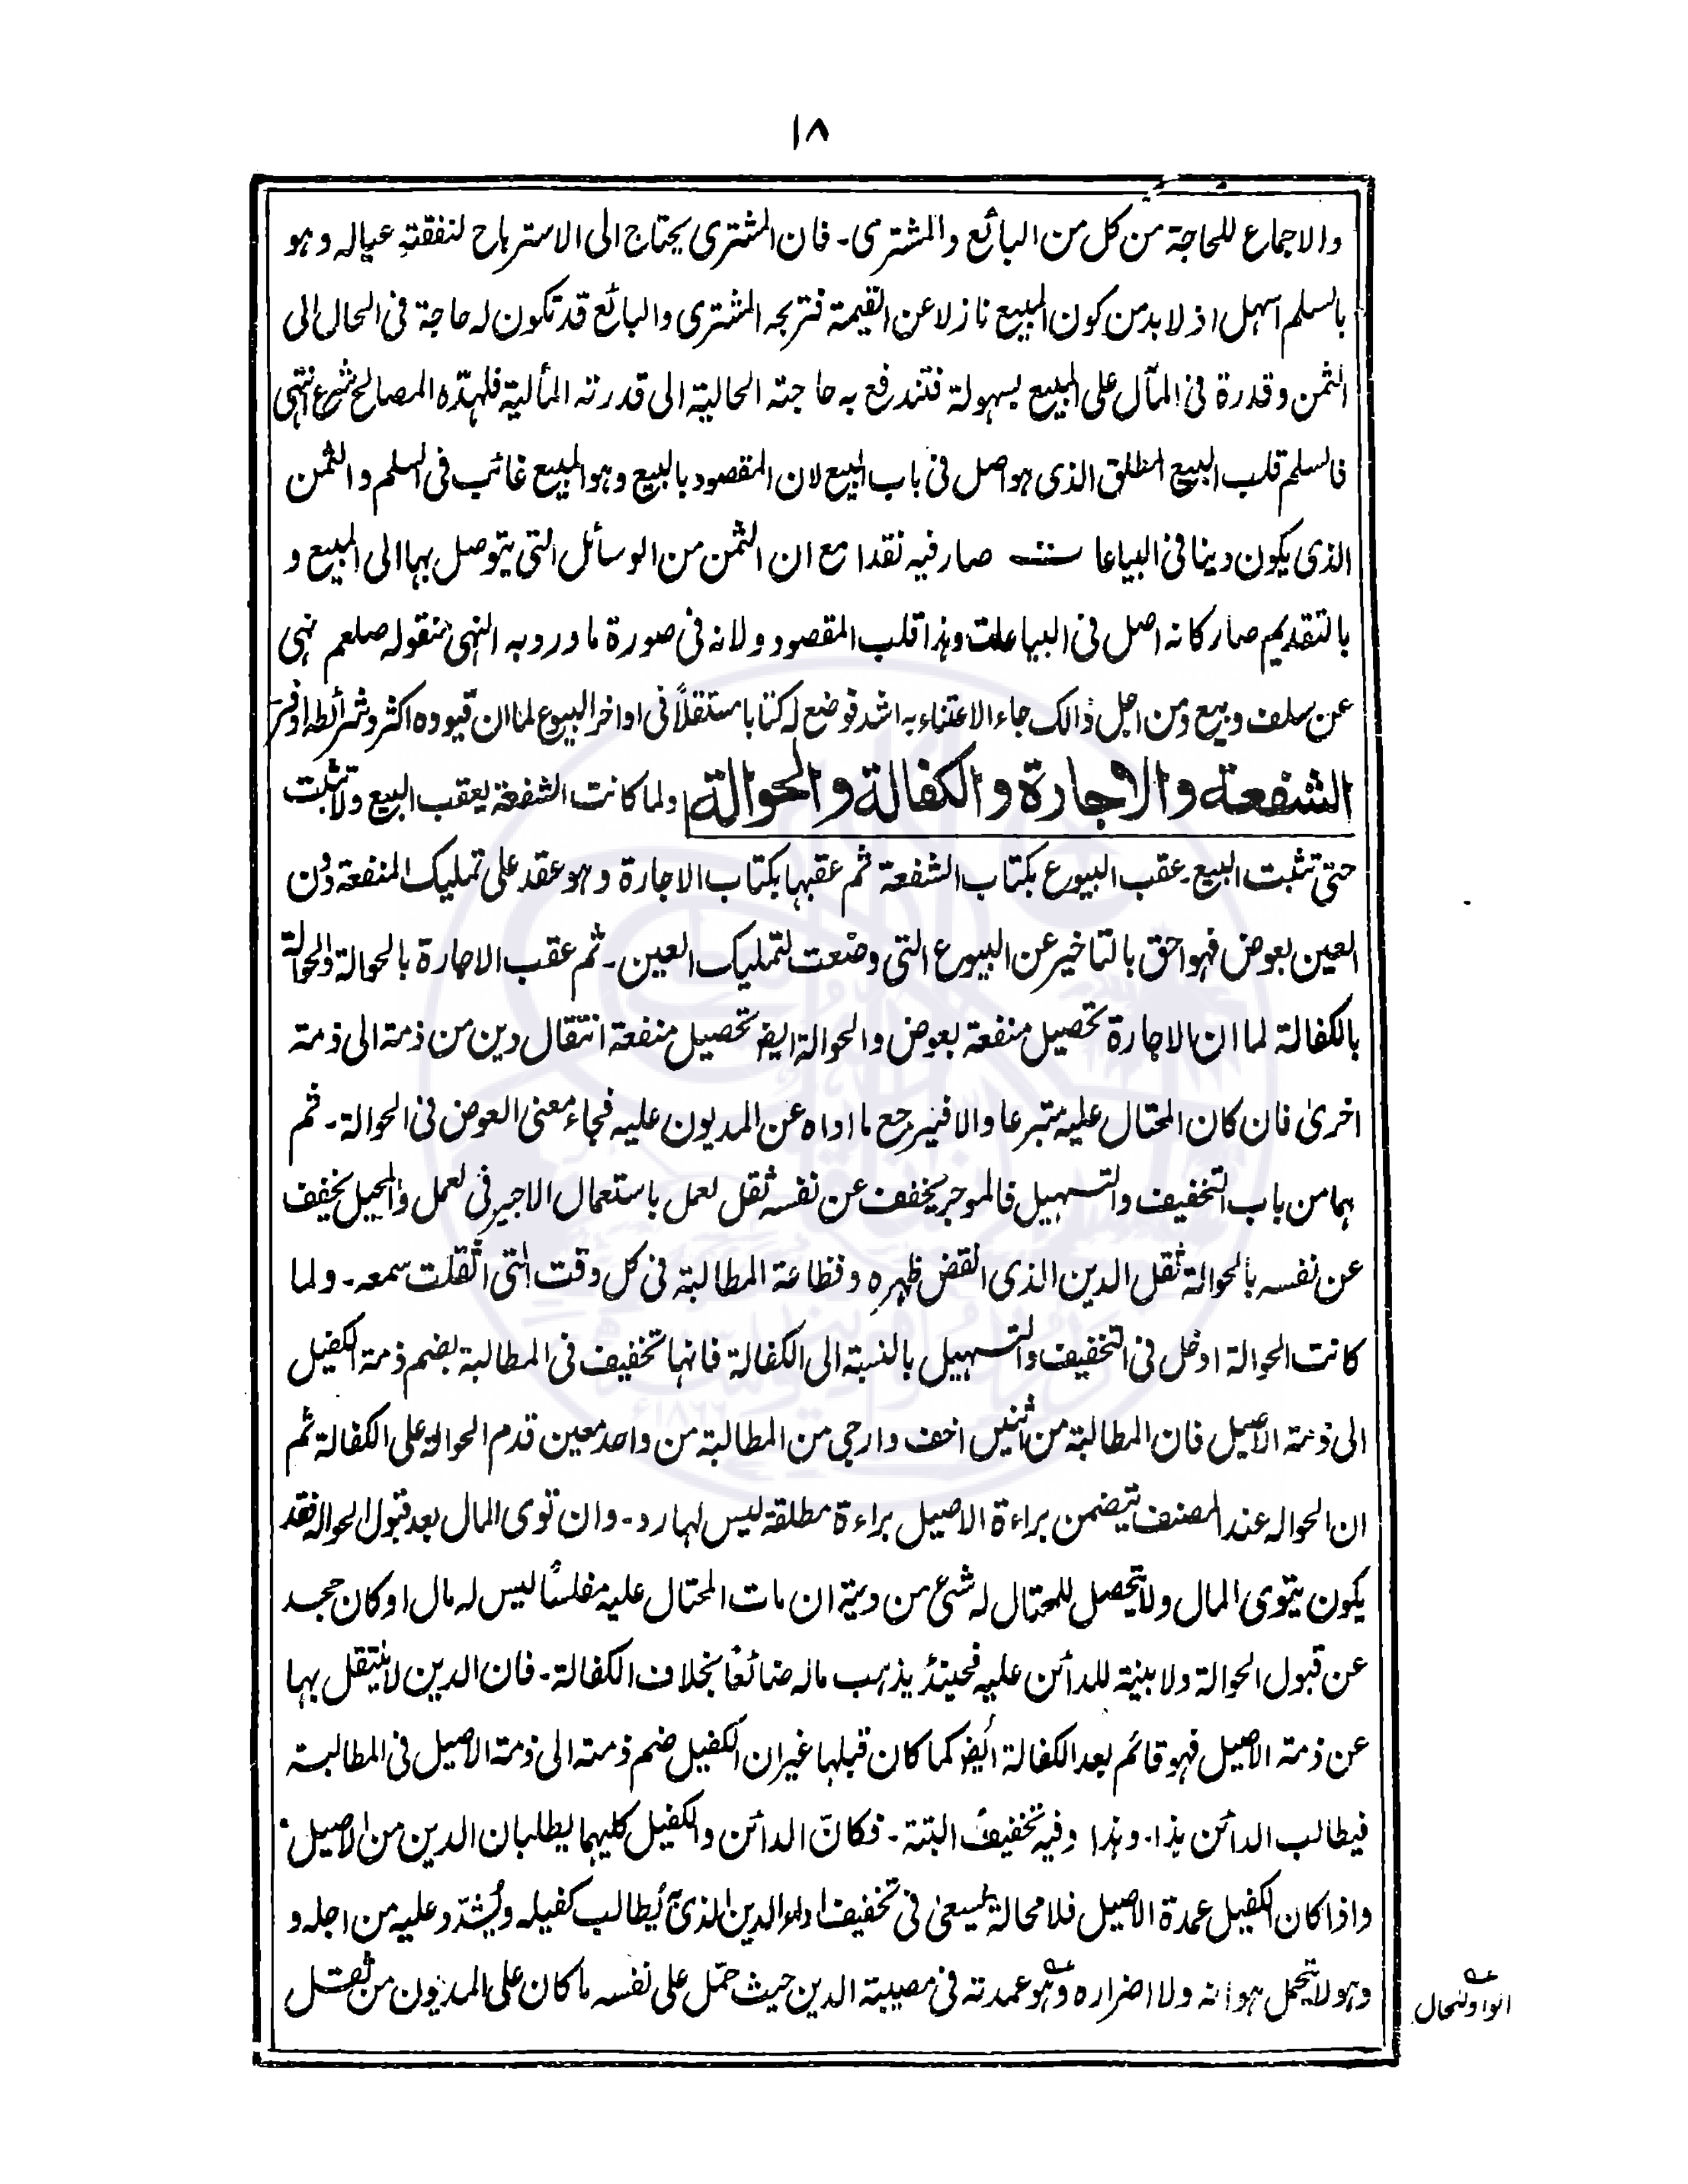 ١٨
والاجماع للحاجة من كل من البائع والمشترى۔ فان المشترى يحتاج الى الاسترباح لنفقتہ عياله وهو
بالسلم اسهل اذ لا بد من كون المبيع نازلا عن القيمة فتربحه المشترى والبائع قد تكون له حاجة فى الحال الى
الثمن وقدرة فى المآل على المبيع بسهولة فتندفع به حاجته الحالية الى قدرته المألية فلهذه المصالح شرع انتهى
فالسلم قلب البيع المطلق الذى هو اصل فى باب البيع لان المقصود بالبيع وهو المبيع غائب فى السلم والثمن
الذى يكون دينا فى البياعات صار فيه نقدا مع ان الثمن من الوسائل التى يتوصل بها الى المبيع و
بالتقديم صار كانه اصل فى البياعات وهذا قلب المقصود ولانه فى صورة ما ورد به النهى منقوله صلعم نهى
عن سلف وبيع ومن اجل ذالك جاء الاعتناء به اشد فوضع له كتابا مستقلاً فى اواخر البيوع لما ان قيوده اكثر وشرائطه اوفر
الشفعة والاجارة والكفالة والحوالة ولما كانت الشفعة يعقب البيع ولا تثبت
حتى تثبت البيع۔ عقب البيوع بكتاب الشفعة ثم عقبها بكتاب الاجارة وهو عقد على تمليك المنفعة دون
العين بعوض فهو احق بالتاخير عن البيوع التى وضعت لتمليك العين۔ ثم عقب الاجارة بالحوالة والحوالة
بالكفالة لما ان الاجارة تحصيل منفعة بعوض والحوالة ايض تحصيل منفعة انتقال دين من ذمة الى ذمة
اخرىٰ فان كان المحتال عليه متبرعا والا فيرجع ما اداه عن المديون عليه فجاء معنى العوض فى الحوالة۔ ثم
هما من باب التخفيف والتسهيل فالموجر يخفف عن نفسه ثقل لعمل باستعمال الاجير فى لعمل والمحيل يخفف
عن نفسه بالحوالة ثقل الدين الذى انقض ظهره وفظاعة المطالبة فى كل وقت التى اثقلت سمعه۔ ولما
كانت الحوالة ادخل فى التخفيف والتسهيل بالنسبة الى الكفالة فانها تخفيف فى المطالبة بضم ذمة الكفيل
الى ذمة الاصيل فان المطالبة من اثنين اخف وارجى من المطالبة من واحد معين قدم الحوالة على الكفالة ثم
ان الحواله عند المصنف يتضمن براءة الاصيل براءة مطلقة ليس لها رد۔ وان توى المال بعد قبول الحوالة فقد
يكون يتوى المال ولا يحصل للمحتال له شئ من دينة ان مات المحتال عليه مفلسًا ليس له مال او كان جحد
عن قبول الحوالة ولا بينة للدائن عليه فحينئذ يذهب ماله ضائعًا بخلاف الكفالة۔ فان الدين لا ينتقل بها
عن ذمة الاصيل فهو قائم بعد الكفالة ايض كما كان قبلها غير ان الكفيل ضم ذمته الى ذمة الاصيل فى المطالبة
فيطالب الدائن هذا۔ وهذا وفيه تخفيف البتة۔ فكانّ الدائن والكفيل كليهما يطلبان الدين من الاصيل
واذا كان الكفيل عمدة الاصيل فلا محالة يسعىٰ فى تخفيف اداء الدين الذى يُطالب كفيله ويُشدّد عليه من اجله و
وهو لا يتحمل هوانه ولا اضراره وهو عمدته فى مصيبة الدين حيث حمّل على نفسه ما كان على المديون من ثقل